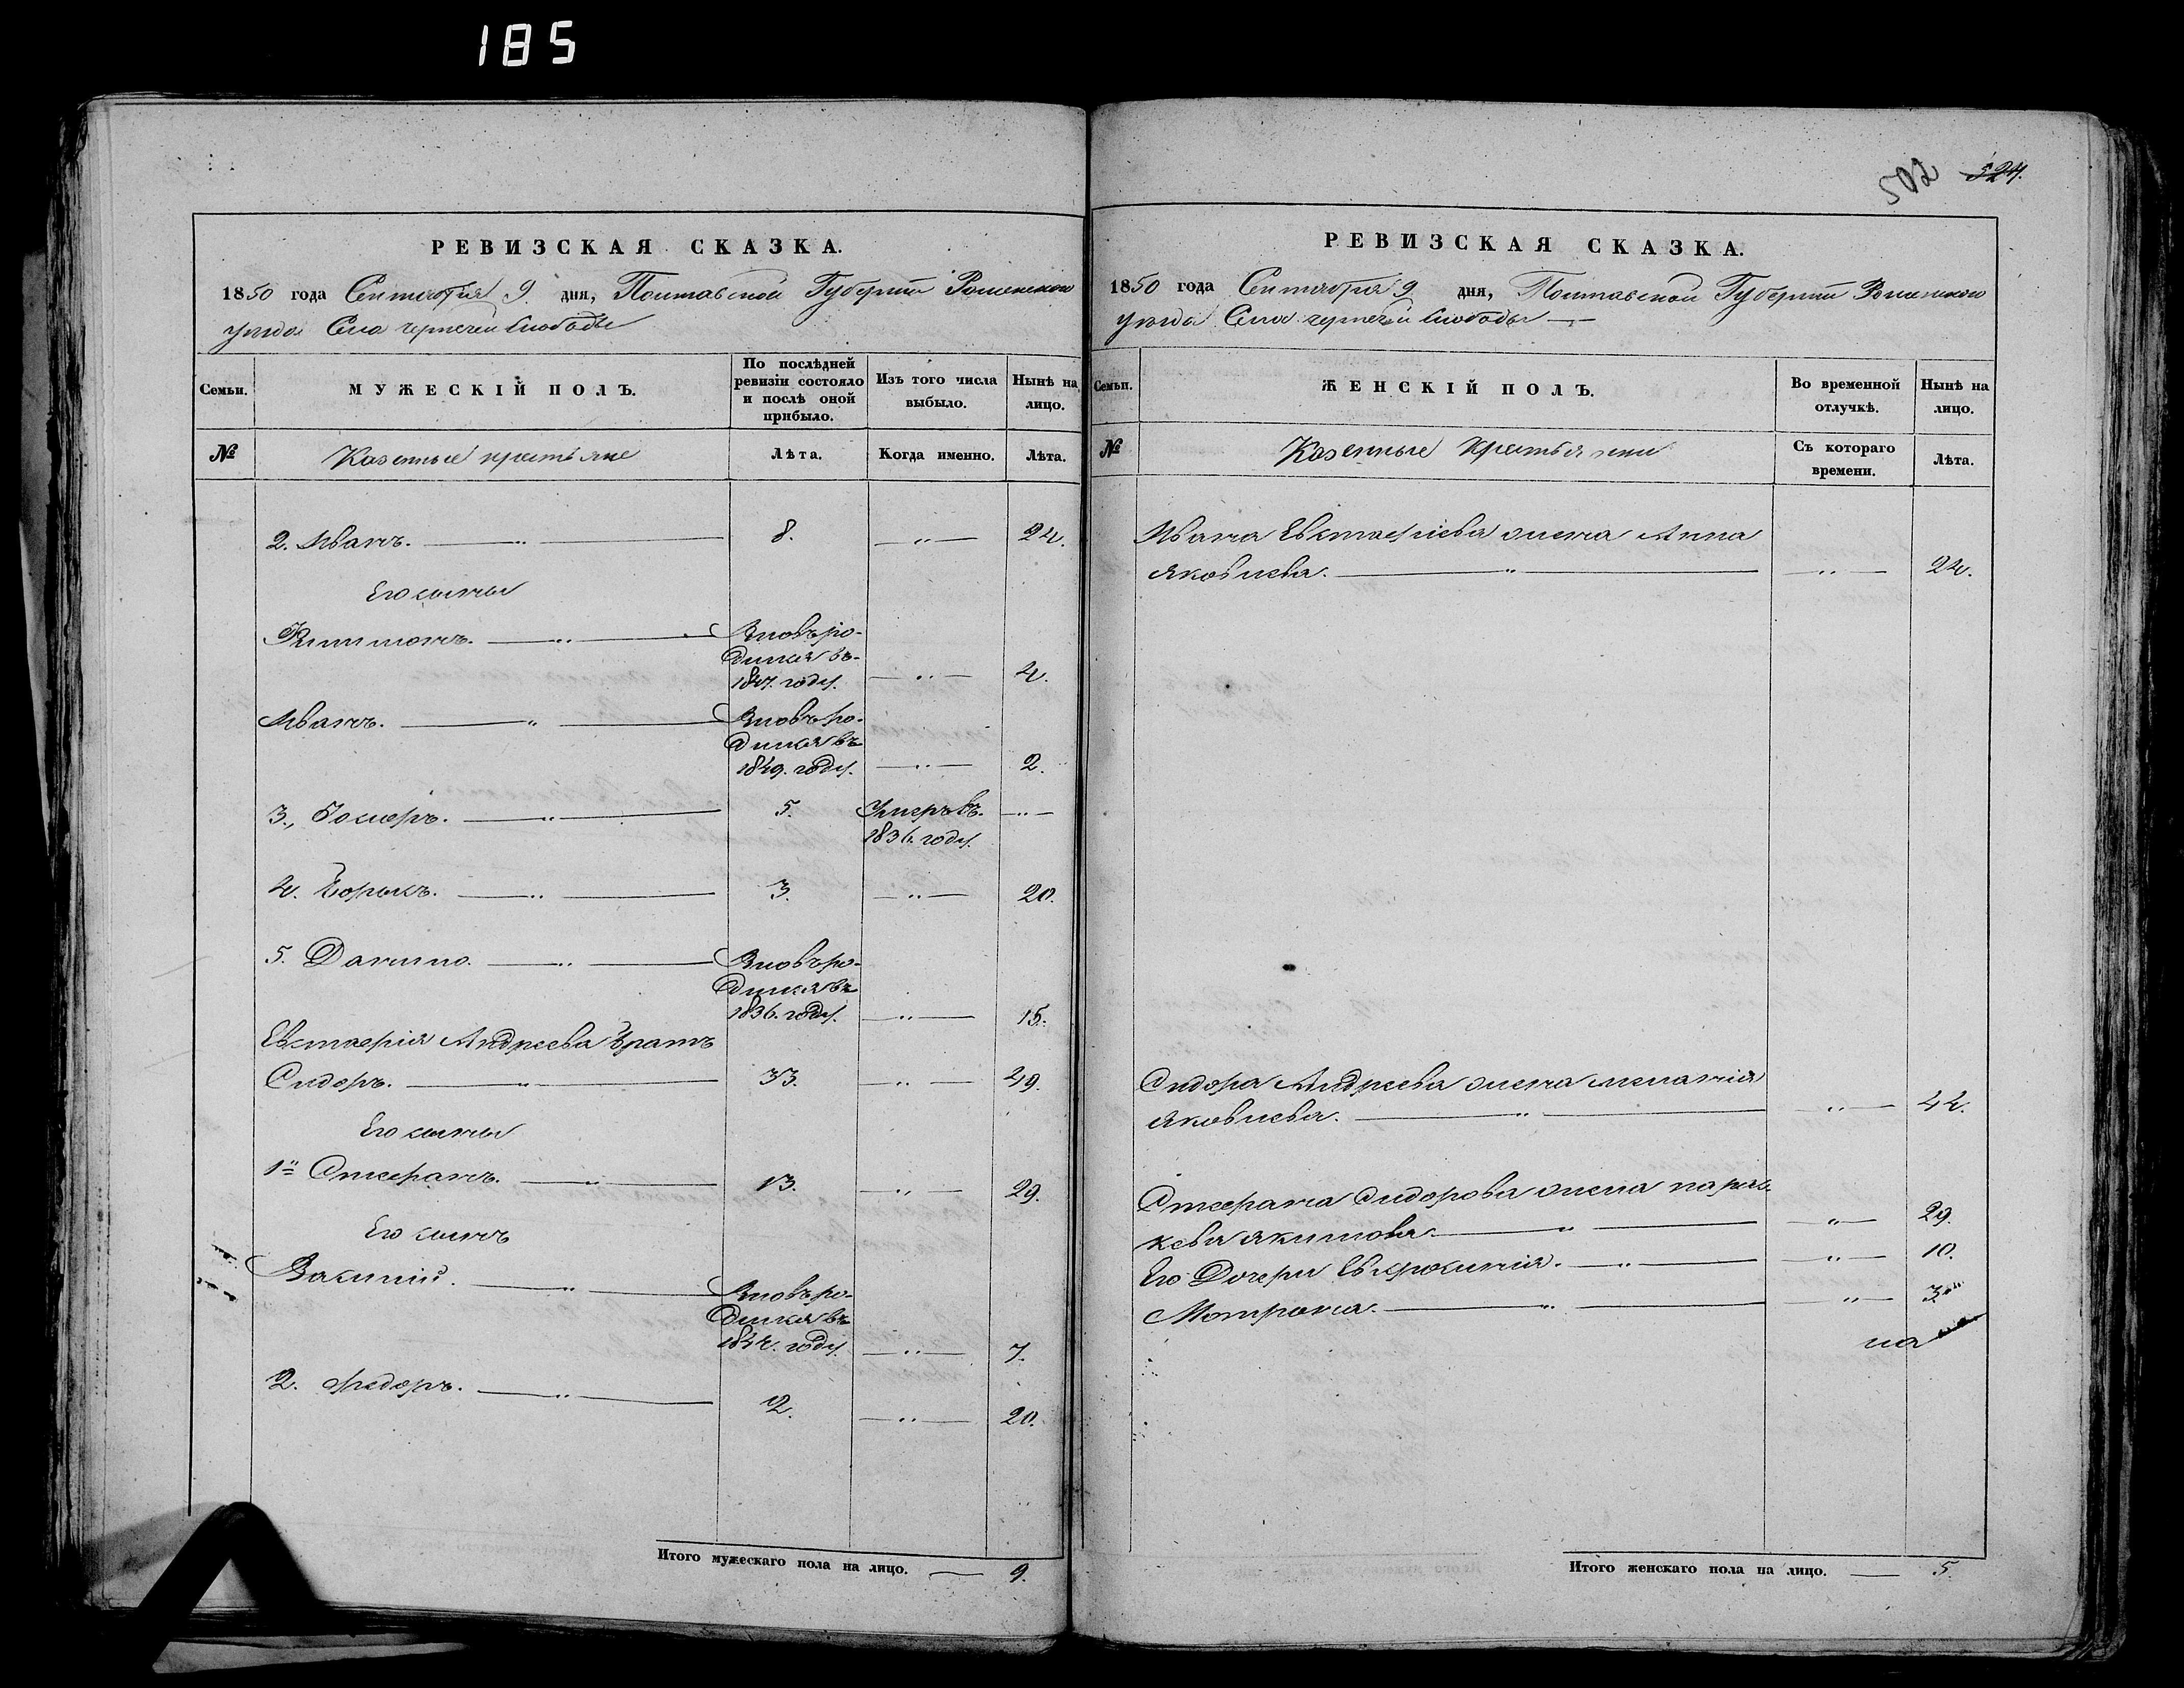 185
РЕВИЗСКАЯ СКАЗКА.
1850 года Сентября 9 дня, Полтавской Губернии Роменского
уезда Села чернечей Слободы
Семьи.
МУЖЕСКІЙ ПОЛЪ.
По послѣдней ревизіи состояло и послѣ оной прибыло.
Изъ того числа выбыло.
Нынѣ на лицо.
№
Казенные крестьяне
Лѣта.
Когда именно.
Лѣта.
2. Иванъ. 8. 24.
Его сыны
Вновь ро-
дился въ
1847. году. 4.
Иванъ. Вновь ро-
дился въ
1849. году. 2.
3., 5. Умеръ въ
1836. году.
4. 3. 20.
5. Данило. Вновь ро-
дился въ
1836. году. 15.
Евстафія Андреева братъ
Сидоръ. 33. 49.
Его сыны
1й Стефанъ. 13. 29.
Его сынъ
Василій. Вновь ро-
дился въ
1844. году. 7.
2. Федоръ. 20.
Итого мужескаго пола на лицо. 9.
502 524.
РЕВИЗСКАЯ СКАЗКА.
1850 года Сентября 9 дня, Полтавской Губернии Роменского
уезда Села чернечей Слободы
Семьи.
ЖЕНСКІЙ ПОЛЪ.
Во временной отлучкѣ.
Нынѣ на лицо.
№
Казенные Крестьянки
Съ котораго времени.
Лѣта.
Ивана Евстафіева жена Анна
Яковлева. 24.
Сидора Андреева жена меланія
Яковлева. 44.
Стефана Сидорова жена парас-
кева якимова. 29.
Его Дочери Евфросинія. 10.
Мотрона. 3.
Итого женскаго пола на лицо. 5.